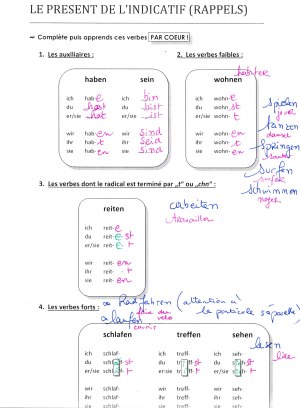 LE PRESENT DE L'INDICATIF (RAPPELS)
Complète puis apprends ces verbes PAR COEUR !
1. Les auxiliaires :
2. Les verbes faibles :
haben sein
ich hab-e bin
du hast bist
er/sie hat ist
wir hab-en sind
ihr hab-t seid
sie hab-en sind
habiter
wohnen
ich wohn-e
du wohn-st
er/sie wohn-t
wir wohn-en
ihr wohn-t
sie wohn-en
spielen
jouer
tanzen
danser
springen
sauter
surfen
surfer
schwimmen
nager
3. Les verbes dont le radical est terminé par „t" ou „chn" :
reiten
ich reit-e
du reit-e-st
er/sie reit-e-t
wir reit-en
ihr reit-e-t
sie reit-en
arbeiten
travailler
4. Les verbes forts :
Radfahren (attention à
la particule séparable)
faire du
vélo
laufen
courir
schlafen treffen sehen
ich schlaf- ich treff- ich seh-
du du du
er/sie er/sie er/sie
wir schlaf- wir treff- wir seh-
ihr schlaf- ihr treff- ihr seh-
lesen
lire